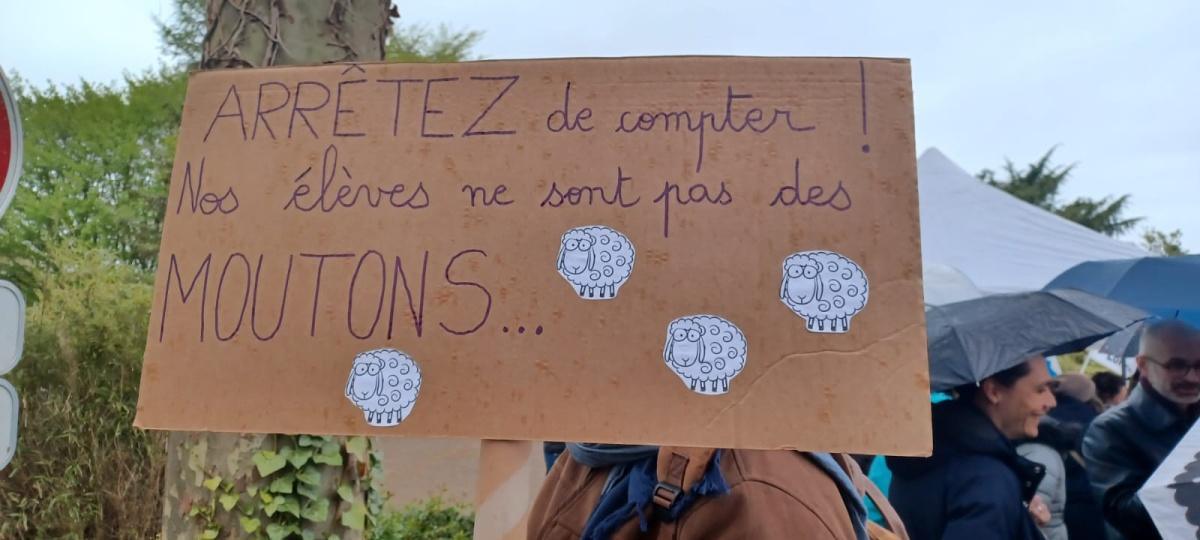 ARRÊTEZ de compter !
Nos élèves ne sont pas des
MOUTONS...